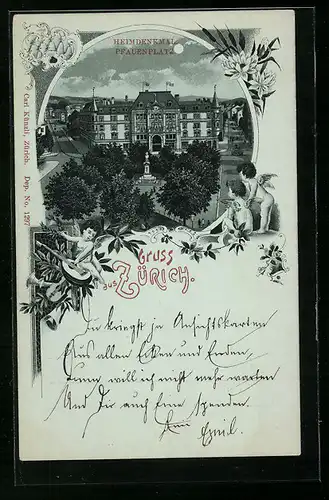 HEIMDENKMAL
PFAUENPLATZ
Carl Künzli, Zürich. Dep. No. 1297
GRUSS
aus ZÜRICH.
Du kriegst ja Ansichtskarten
Aus allen Ecken und Enden,
Drum will ich nicht mehr warten
Und Dir auch Eine spenden
Emil.